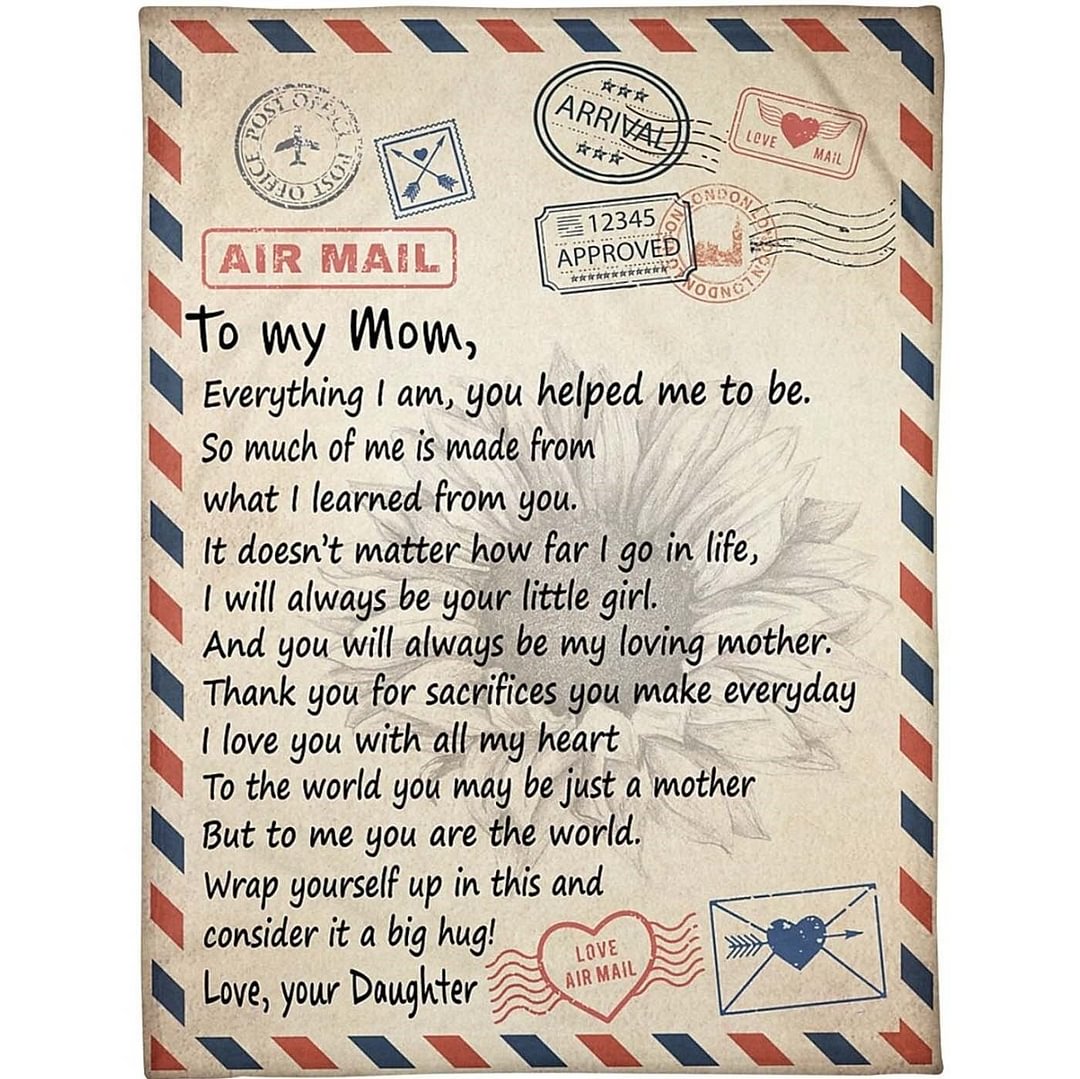 POST OFFICE POST OFFICE
ARRIVAL
LOVE MAIL
12345
APPROVED
LONDON LONDON LONDON
AIR MAIL
To my Mom,
Everything I am, you helped me to be.
So much of me is made from
what I learned from you.
It doesn't matter how far I go in life,
I will always be your little girl.
And you will always be my loving mother.
Thank you for sacrifices you make everyday
I love you with all my heart
To the world you may be just a mother
But to me you are the world.
Wrap yourself up in this and
consider it a big hug!
Love, your Daughter
LOVE
AIR MAIL